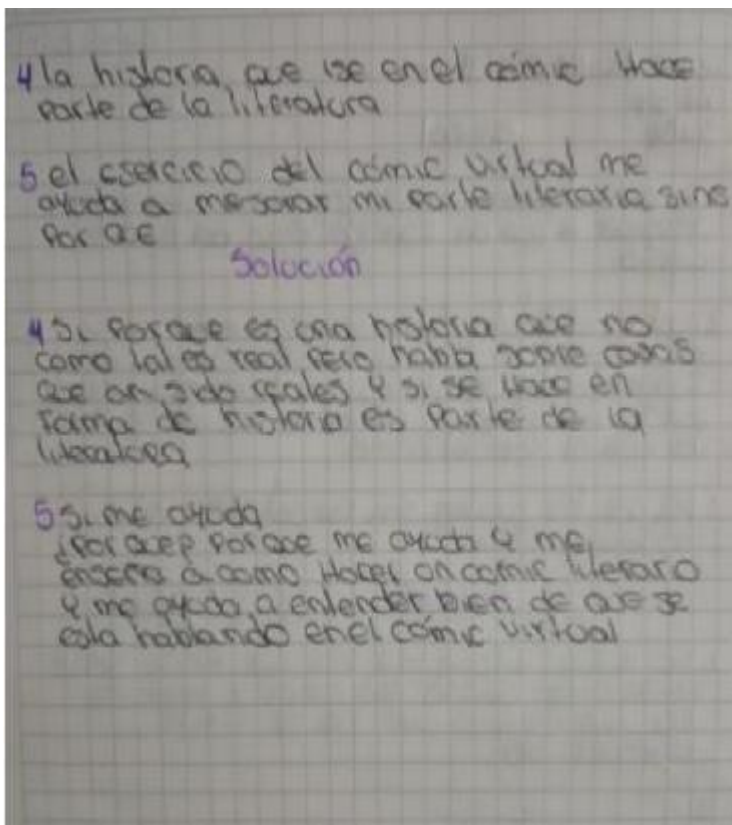 4 la historia que ise en el cómic Hace
parte de la literatura
5 el esercicio del cómic virtual me
ayuda a mesorar mi parte literaria sino
por qe
Solución
4 Si porque es una historia que no
como tal es real pero habla sobre cosas
que an sido reales y si se Hace en
forma de historia es parte de la
5 Si me ayuda
¿Por que? Porque me ayuda y me
enseña a como Hacer un comic literaro
y me ayuda a entender bien de que se
esta hablando en el cómic virtual